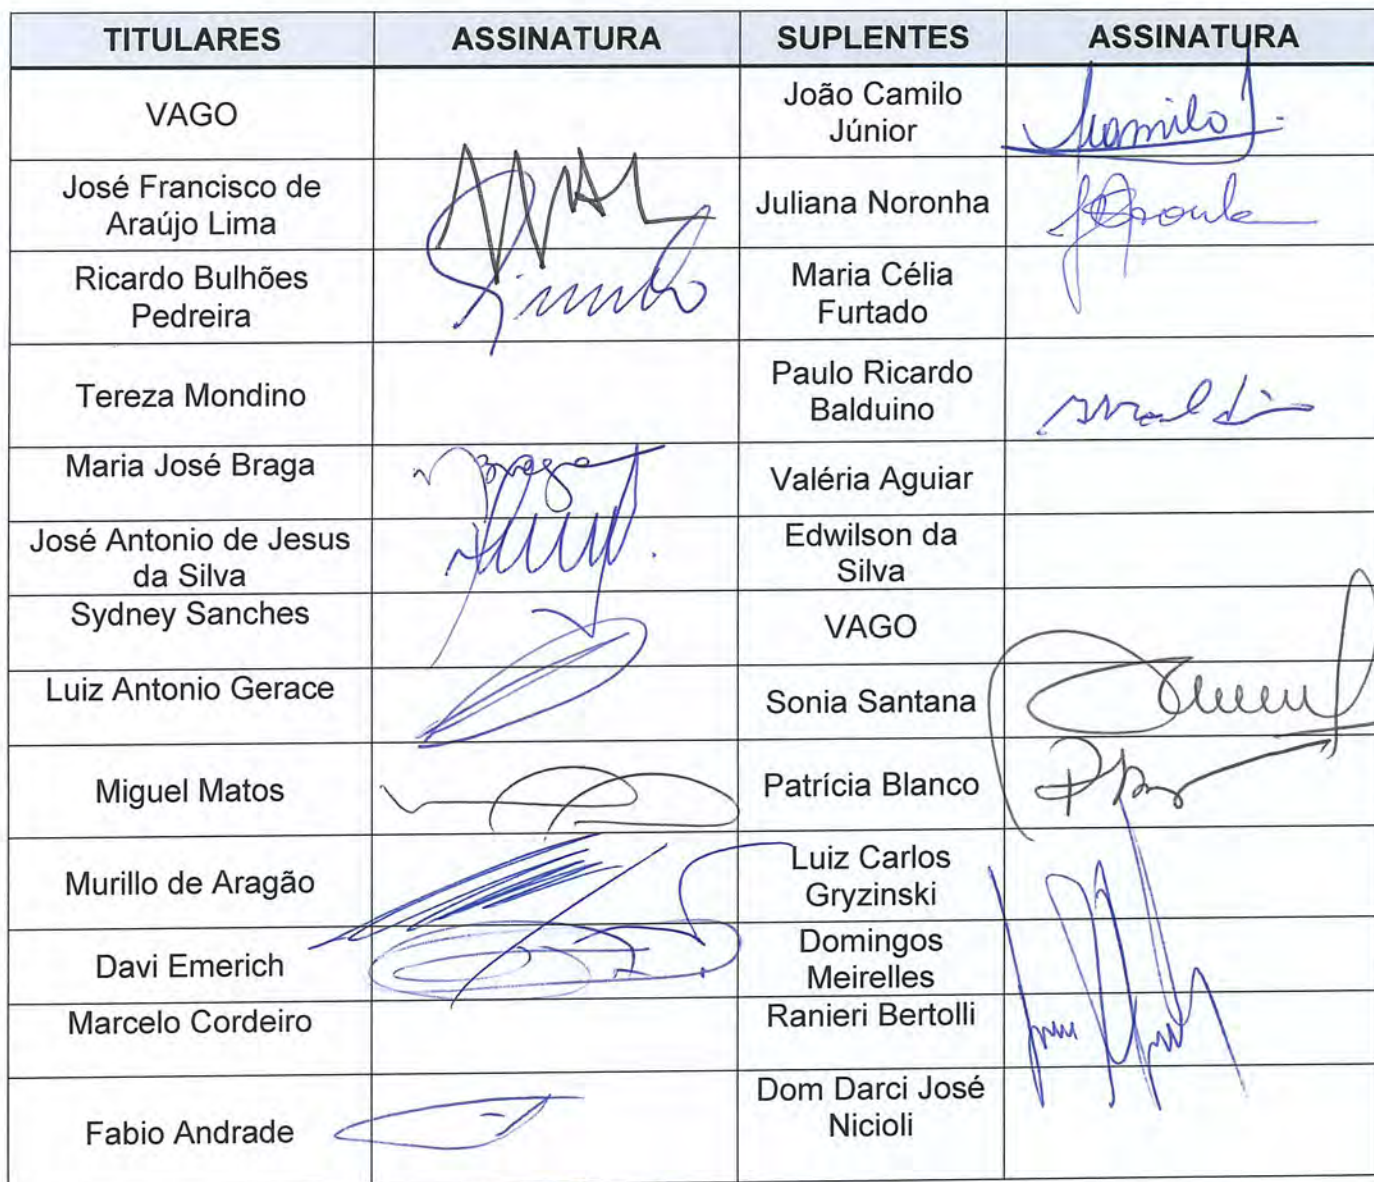 TITULARES ASSINATURA SUPLENTES ASSINATURA
VAGO
João Camilo
Júnior
Jcamilo J.
José Francisco de
Araújo Lima
Juliana Noronha
Ricardo Bulhões
Pedreira
Maria Célia
Furtado
Tereza Mondino
Paulo Ricardo
Balduino
Maria José Braga
Braga
Valéria Aguiar
José Antonio de Jesus
da Silva
Edwilson da
Silva
Sydney Sanches
VAGO
Luiz Antonio Gerace
Sonia Santana
Miguel Matos
Patrícia Blanco
Murillo de Aragão
Luiz Carlos
Gryzinski
Davi Emerich
Domingos
Meirelles
Marcelo Cordeiro
Ranieri Bertolli
Fabio Andrade
Dom Darci José
Nicioli